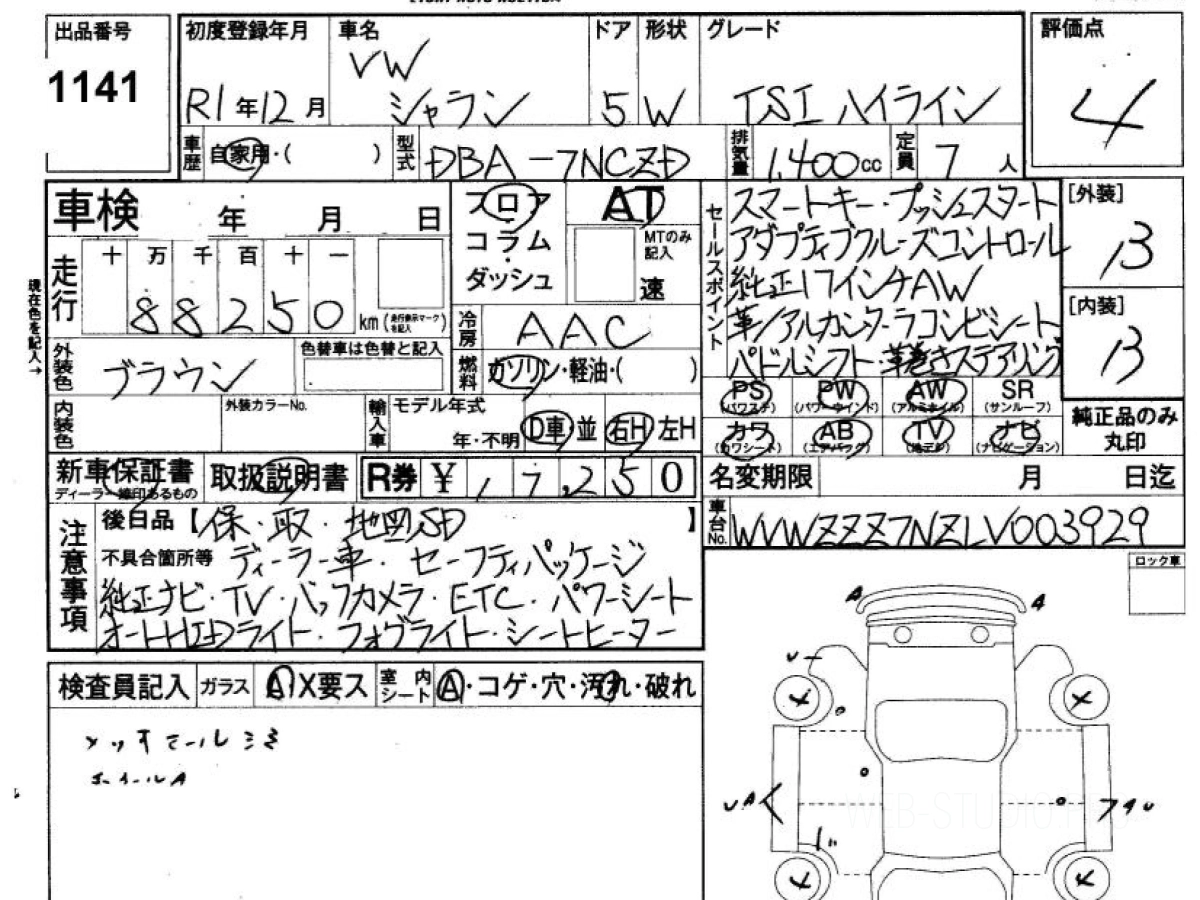 出品番号
1141
初度登録年月
R1年12月
車名
VW
シャラン
ドア
5
形状
W
グレード
TSI ハイライン
評価点
4
車歴
自家用・( )
型式
DBA-7NCZD
排気量
1,400cc
定員
7人
車検 年 月 日
走行
十 万 千 百 十 一
88250 km(走行表示マークを記入)
現在色を記入→
フロア・コラム・ダッシュ
AT
MTのみ記入
速
冷房
AAC
燃料
ガソリン・軽油・( )
セールスポイント
スマートキー・プッシュスタート
アダプティブクルーズコントロール
純正17インチAW
革/アルカンターラコンビシート
パドルシフト・革巻きステアリング
[外装]
B
[内装]
B
外装色
ブラウン
色替車は色替と記入
内装色
外装カラーNo.
輸入車
モデル年式
年・不明
D車・並
右H・左H
PS (パワステ)
PW (パワーウインド)
AW (アルミホイル)
SR (サンルーフ)
カワ (カワシート)
AB (エアバック)
TV (地デジ)
ナビ (ナビゲーション)
純正品のみ丸印
新車保証書
ディーラー線印あるもの
取扱説明書
R券 ¥17,250
名変期限 月 日迄
車台No.
WVWZZZ7NZLV003929
注意事項
後日品【保・取・地図SD】
不具合箇所等 ディーラー車・セーフティパッケージ
純正ナビ・TV・バックカメラ・ETC・パワーシート
オートHIDライト・フォグライト・シートヒーター
ロック車
検査員記入
ガラス
A X要ス
室内シート
A・コゲ・穴・汚れ・破れ
ホイールA
A
A